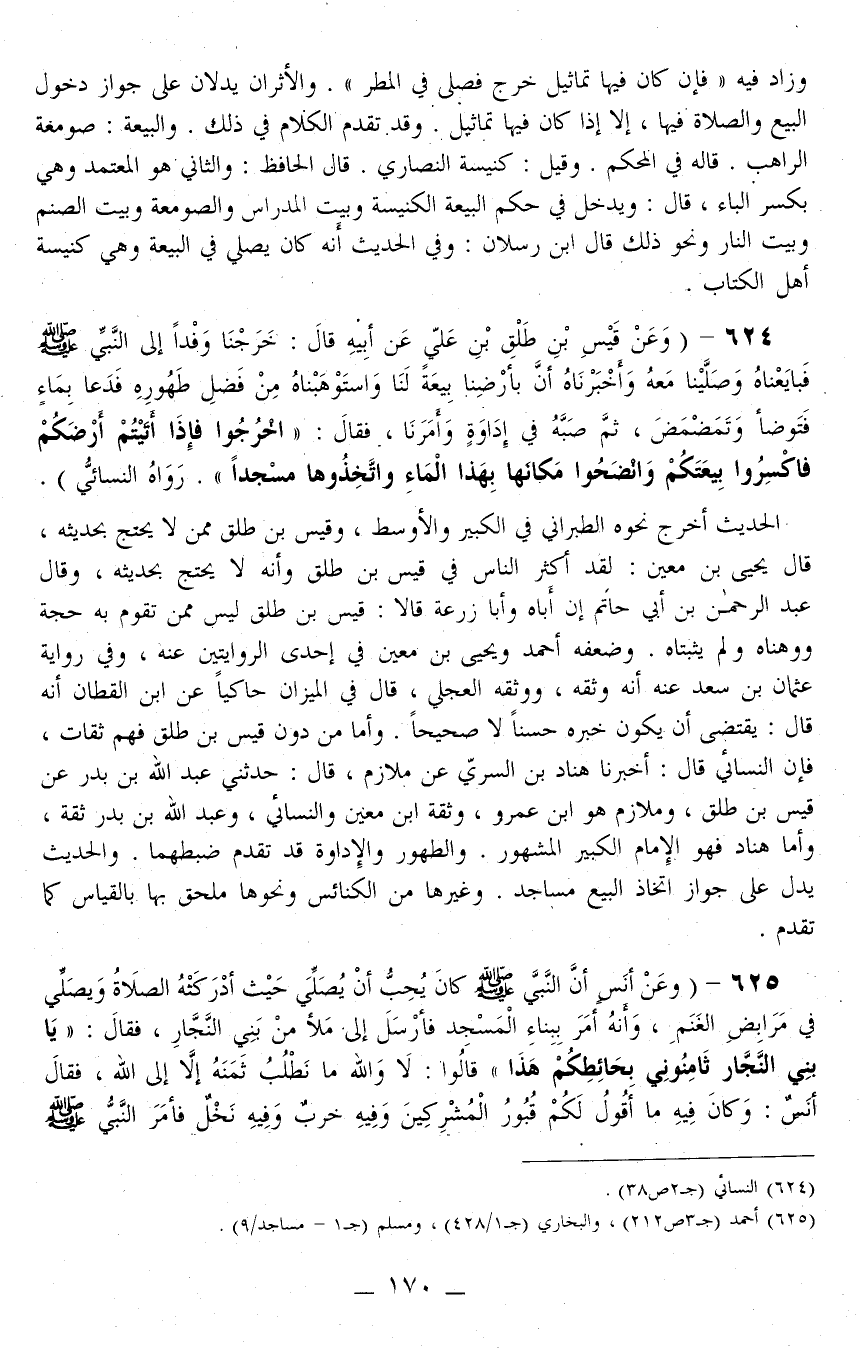 وزاد فيه « فإن كان فيها تماثيل خرج فصلى في المطر » . والأثران يدلان على جواز دخول
البيع والصلاة فيها ، إلا إذا كان فيها تماثيل . وقد تقدم الكلام في ذلك . والبيعة : صومعة
الراهب . قاله في المحكم . وقيل : كنيسة النصارى . قال الحافظ : والثاني هو المعتمد وهي
بكسر الباء ، قال : ويدخل في حكم البيعة الكنيسة وبيت المدراس والصومعة وبيت الصنم
وبيت النار ونحو ذلك قال ابن رسلان : وفي الحديث أنه كان يصلي في البيعة وهي كنيسة
أهل الكتاب .
٦٢٤ – ( وَعَنْ قَيْسِ بْنِ طَلْقِ بْنِ عَلِيّ عَن أبِيهِ قالَ : خَرَجْنَا وَفْداً إلى النَّبِّي ﷺ
فَبايَعْناهُ وَصَلَّيْنا مَعهُ وَأَخْبَرْنَاهُ أنَّ بأرْضِينا بِيعَةً لَنَا وَاستَوْهَبْناهُ مِنْ فَضلِ طَهُورِهِ فَدَعا بِمَاءٍ
فَتَوضأ وَتَمَضْمَضَ ، ثمَّ صَبَّهُ في إدَاوَةٍ وَأمَرَنَا ، فقالَ : « اخْرُجُوا فإذَا أتَيْتُمْ أرْضَكُمْ
فاكْسِرُوا بِيعَتَكُمْ وَانْضَحُوا مَكانَها بِهَذا الْمَاءِ واتَّخِذُوها مسْجداً » . رَوَاهُ النسائيُّ ) .
الحديث أخرج نحوه الطبراني في الكبير والأوسط ، وقيس بن طلق ممن لا يحتج بحديثه ،
قال يحيى بن معين : لقد أكثر الناس في قيس بن طلق وأنه لا يحتج بحديثه ، وقال
عبد الرحمٰن بن أبي حاتم إن أباه وأبا زرعة قالا : قيس بن طلق ليس ممن تقوم به حجة
ووهناه ولم يثبتاه . وضعفه أحمد ويحيى بن معين في إحدى الروايتين عنه ، وفي رواية
عثمان بن سعد عنه أنه وثقه ، ووثقه العجلي ، قال في الميزان حاكياً عن ابن القطان أنه
قال : يقتضى أن يكون خبره حسناً لا صحيحاً . وأما من دون قيس بن طلق فهم ثقات ،
فإن النسائي قال : أخبرنا هناد بن السريّ عن ملازم ، قال : حدثني عبد الله بن بدر عن
قيس بن طلق ، وملازم هو ابن عمرو ، وثقة ابن معين والنسائي ، وعبد الله بن بدر ثقة ،
وأما هناد فهو الإمام الكبير المشهور . والطهور والإداوة قد تقدم ضبطهما . والحديث
يدل على جواز اتخاذ البيع مساجد . وغيرها من الكنائس ونحوها ملحق بها بالقياس كما
تقدم .
٦٢٥ – ( وعَنْ أنَسٍ أنَّ النَّبَّي ﷺ كانَ يُحِبُّ أنْ يُصَلِّيَ حَيْث أدْرَكَتْهُ الصلاةُ وَيصلِّي
في مَرَابِضِ الغَنَمِ ، وَأنهُ أُمَرَ بِبناءِ الْمَسْجِد فأرْسَلَ إلى مَلأ منْ بَنِي النَّجَّارِ ، فقالَ : « يَا
بنِي النَّجَّار ثَامِنُونِي بِحَائِطِكُمْ هَذَا » قالُوا : لَا وَالله ما نَطْلُبُ ثَمَنَهُ إلَّا إلى الله ، فقالَ
أنسٌ : وَكانَ فِيهِ ما أقُولُ لَكُمْ قُبُورُ الْمُشْرِكِينَ وَفِيهِ خربٌ وَفِيهِ نَخْلٌ فأمَرَ النَّبُّي ﷺ
(٦٢٤) النسائي (جـ٢ص٣٨) .
(٦٢٥) أحمد (جـ٣ص٢١٢) ، والبخاري (جـ١/٤٢٨) ، ومسلم (جـ١ – مساجد/٩) .
– ١٧٠ –